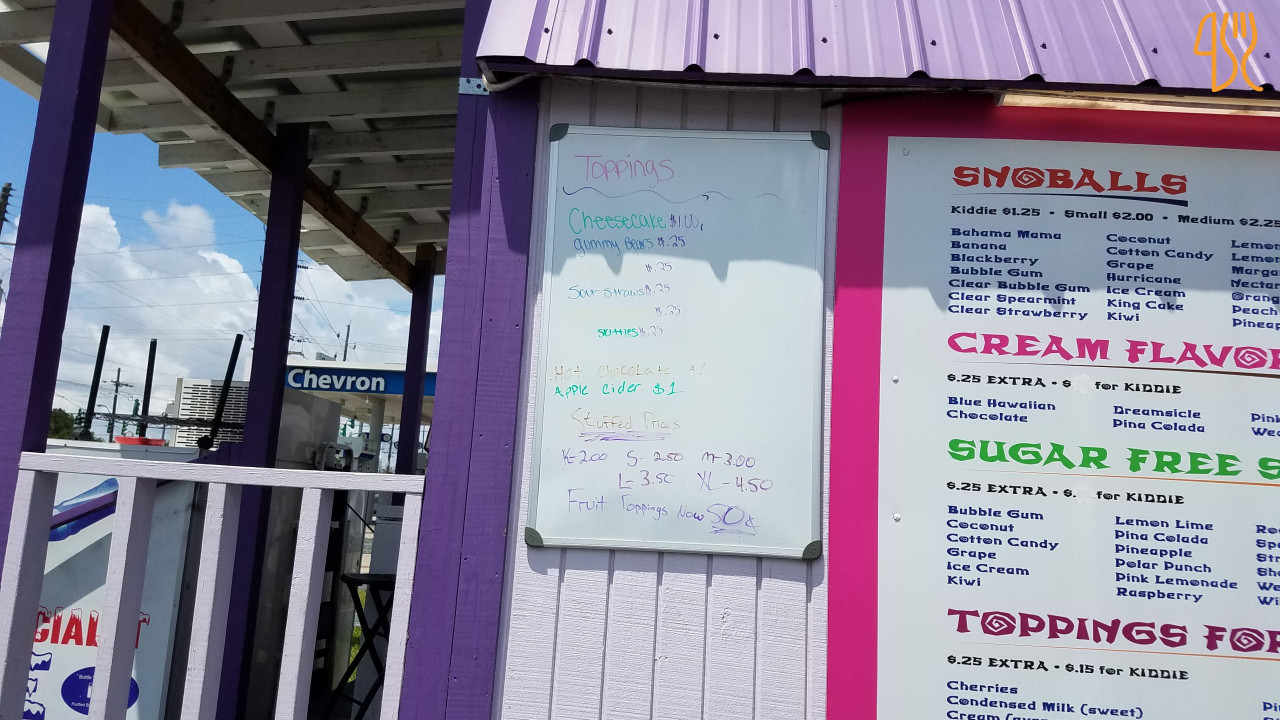 Toppings
Cheesecake $1.00,
gummy Bears $.25
$.25
Sour Straws $.25
$.25
skittles $.25
Hot Chocolate
Apple Cider $1
Stuffed Prices
K-2.00 S-2.50 M-3.00
L-3.50 XL-4.50
Fruit Toppings Now 50¢
Chevron
CIAL
SNOBALLS
Kiddie $1.25 • Small $2.00 • Medium $2.25
Bahama Mama
Banana
Blackberry
Bubble Gum
Clear Bubble Gum
Clear Spearmint
Clear Strawberry
Coconut
Cotton Candy
Grape
Hurricane
Ice Cream
King Cake
Kiwi
Lemon
Lemon
Marga
Nectar
Orang
Peach
Pineap
CREAM FLAVO
$.25 EXTRA • $ for KIDDIE
Blue Hawaiian
Chocolate
Dreamsicle
Pina Colada
Pink
We
SUGAR FREE S
$.25 EXTRA • $. for KIDDIE
Bubble Gum
Coconut
Cotton Candy
Grape
Ice Cream
Kiwi
Lemon Lime
Pina Colada
Pineapple
Polar Punch
Pink Lemonade
Raspberry
Ro
Spe
Str
Sh
We
Wi
TOPPINGS FO
$.25 EXTRA • $.15 for KIDDIE
Cherries
Condensed Milk (sweet)
Cream
Pi